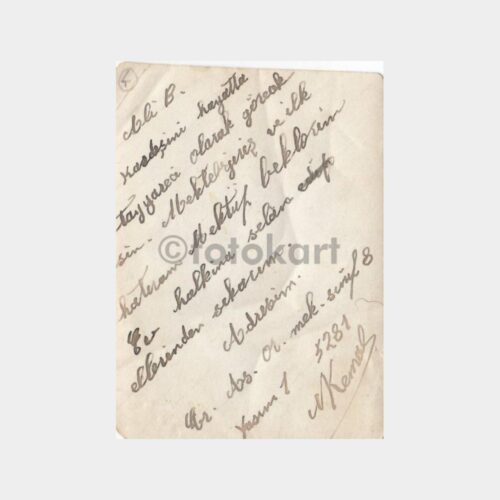 Ali B.
kardeşini hayatta
tayyareci olarak görecek
sin. Mektebimiz ve ilk
hatıram Mektüp beklerim
Ev halkına selâm edip
ellerinden sıkarım.
Adresim.
As. Or. mek. sınıf 8
Kısım 1 5281
NKemal
©fotokart